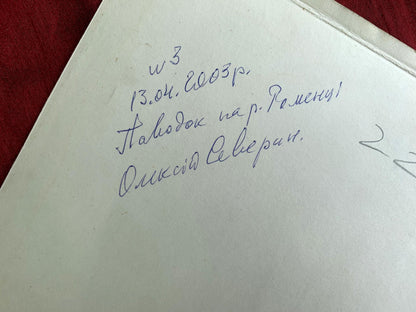 № 3
13.04.2003р.
Паводок на р. Роменці
Олексій Северин.
22